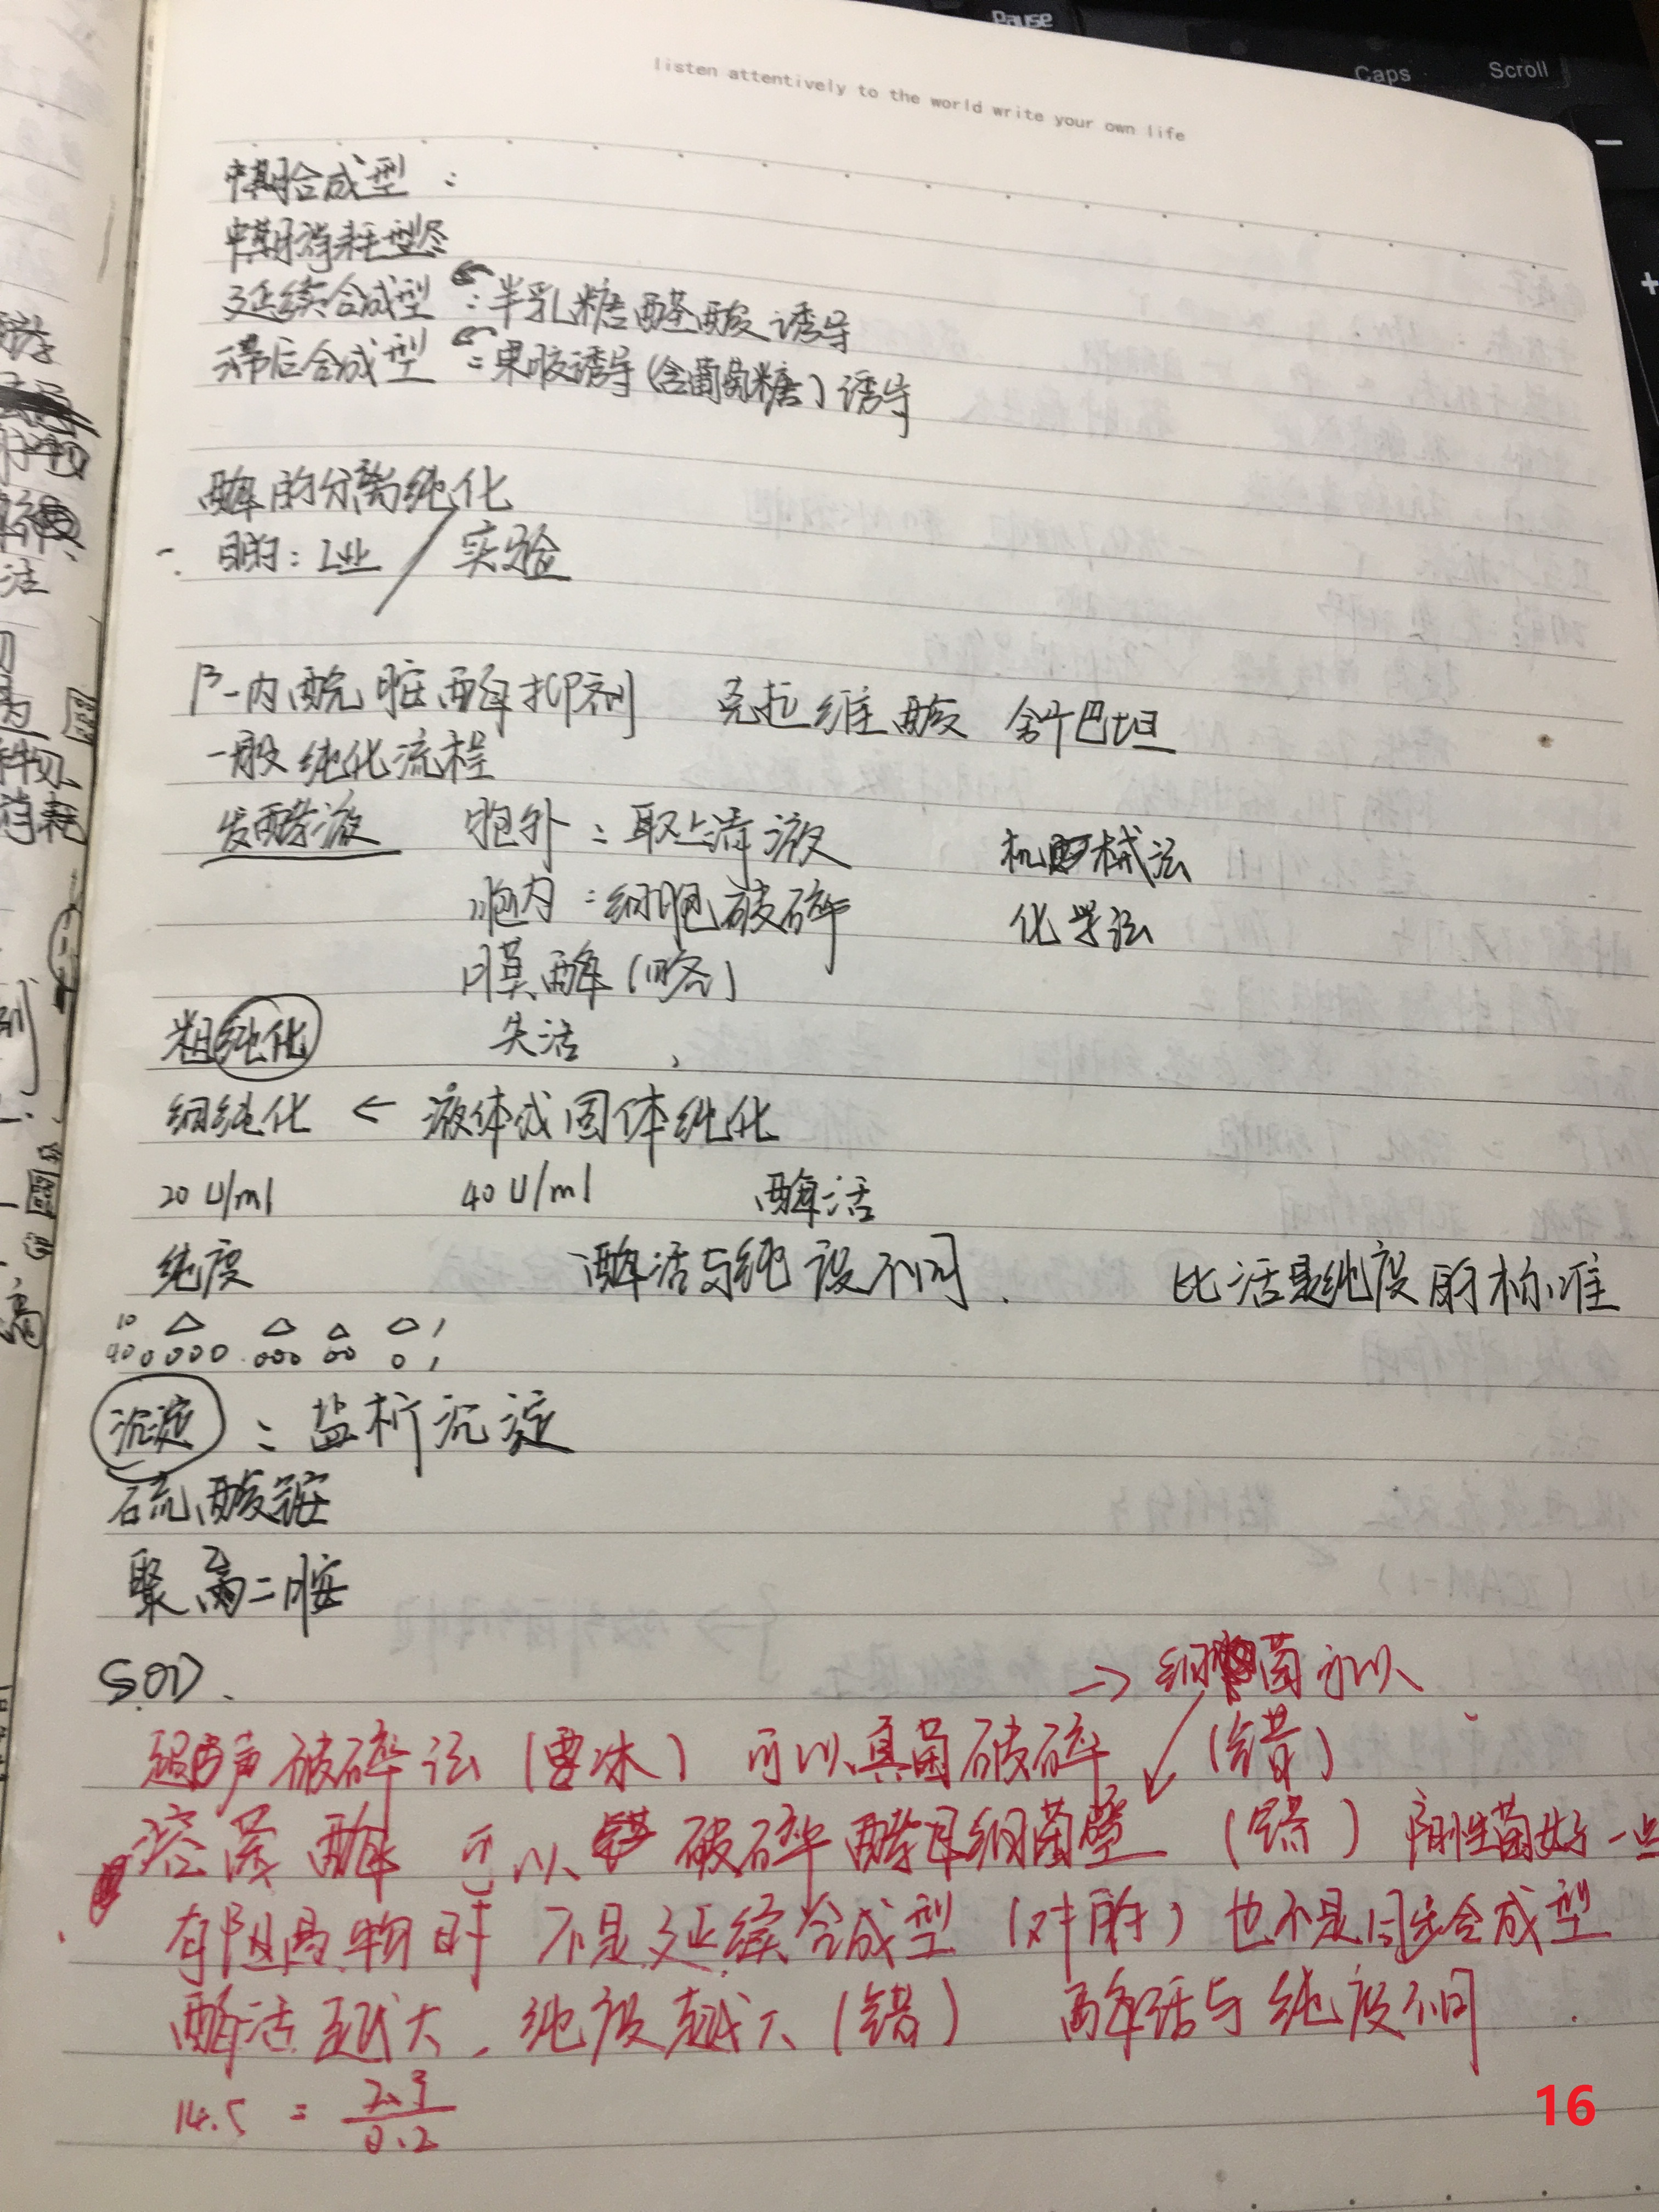 Pause
Caps Scroll
listen attentively to the world write your own life
中期合成型：
中期消耗型
延续合成型：半乳糖醛酸诱导
滞后合成型：果胶诱导（含葡萄糖）诱导
酶的分离纯化
一. 目的：工业 / 实验
β-内酰胺酶抑剂 克拉维酸 舒巴坦
一般纯化流程
发酵液 胞外：取上清液 机械法
胞内：细胞破碎 化学法
膜酶（略）
粗纯化 失活
细纯化 ← 液体或固体纯化
20 U/ml 40 U/ml 酶活
纯度 酶活与纯度不同. 比活是纯度的标准
10 △ △ △ △ 1
40 0000 000 00 0 1
沉淀：盐析沉淀
硫酸铵
聚乙二胺
SOD.
→ 细菌可以
超声破碎法（要冰）可以真菌破碎（错）
溶菌酶可以破碎酵母细菌壁（错）阳性菌好一点
有阻遏物时 不是延续合成型（对的）也不是同步合成型
酶活越大，纯度越大（错） 酶活与纯度不同.
14.5 = 2.9/0.2
16